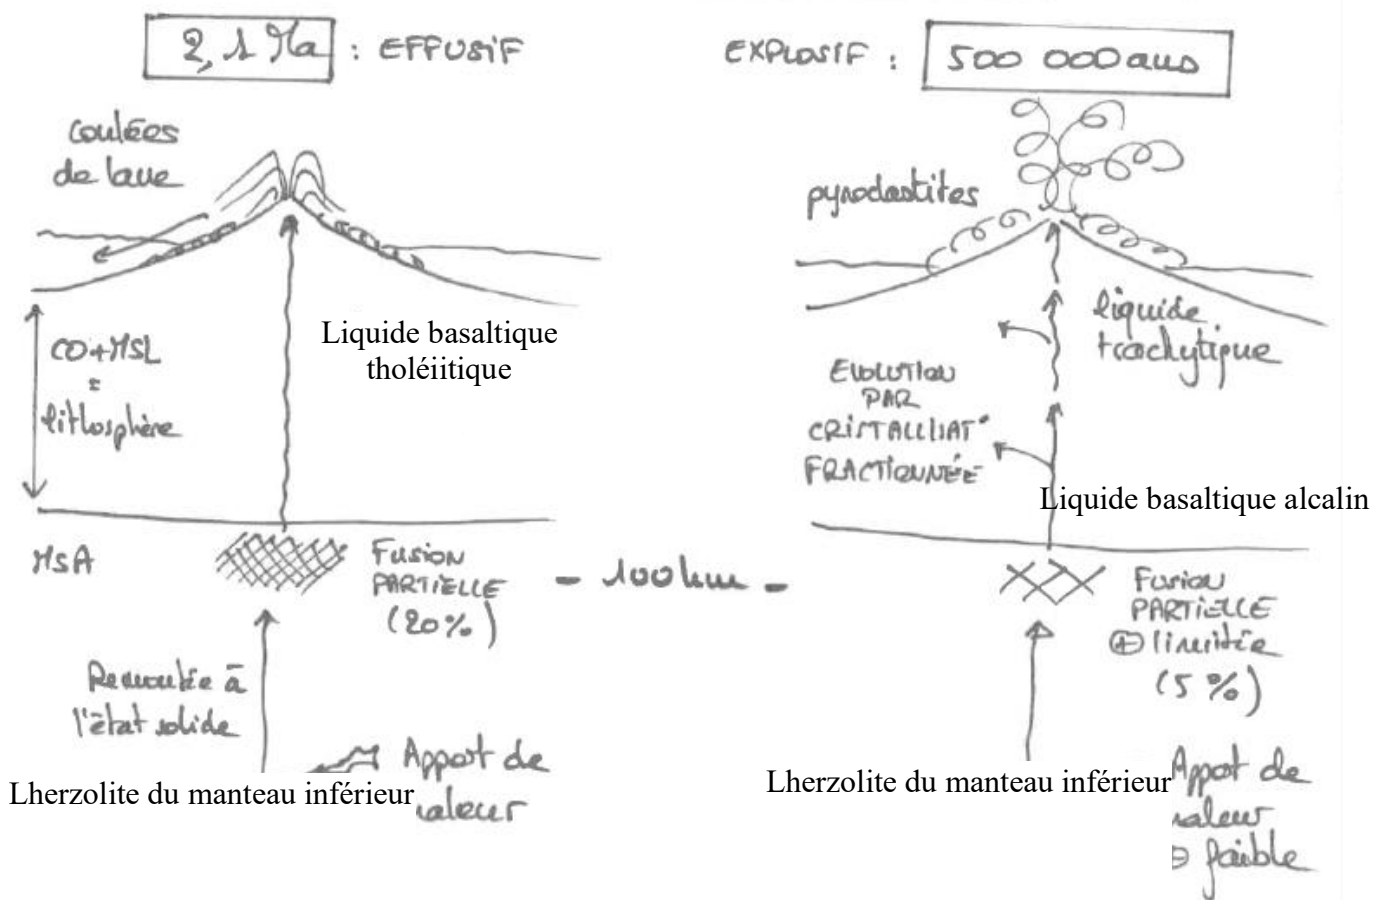 2,1 Ma : EFFUSIF
coulées
de lave
Liquide basaltique
tholéiitique
CO+MSL
=
lithosphère
MSA
FUSION
PARTIELLE
(20%)
Remontée à
l'état solide
Apport de
chaleur
Lherzolite du manteau inférieur
- 100 km -
EXPLOSIF : 500 000 ans
pyroclastites
liquide
trachytique
EVOLUTION
PAR
CRISTALLISAT°
FRACTIONNÉE
Liquide basaltique alcalin
FUSION
PARTIELLE
⊕ limitée
(5 %)
Lherzolite du manteau inférieur
Apport de
chaleur
⊕ faible